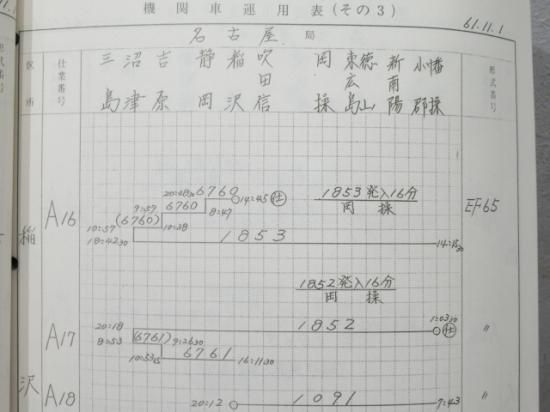 機関車運用表(その3)
61.11.1
名古屋局
区所
仕業番号
三島
沼津
吉原
静岡
稲沢
吹田信
岡
操
東広島
徳山
新南陽
小郡
幡操
形式番号
稲沢
A16
20:08 30 6760
6760
14:45 仕
9:57
8:49
(6760)
10:57
10:38
18:42 30
1853
1853発入16分
岡 操
EF65
1852発入16分
岡 操
A17
20:18
1852
1:03 30 仕
〃
8:53
(6761)
9:26 30
10:53 15
6761
16:11 30
A18
20:12
1091
7:43
〃